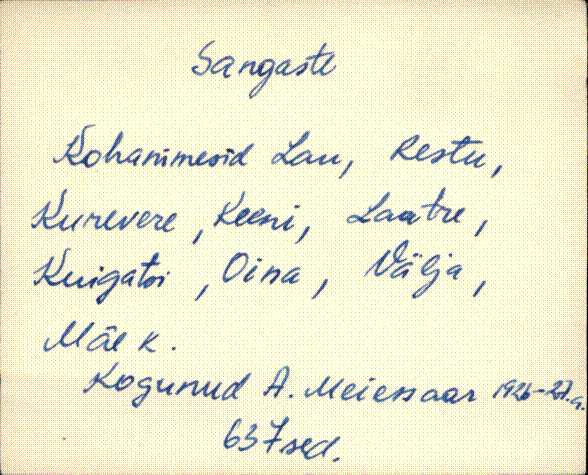 Sangaste
Kohanimesid Lau, Restu,
Kurevere, Keeni, Laatre,
Kuigatsi, Oina, Välja,
Mäe k.
Kogunud A. Meiessaar 1926-27.a.
637 sed.